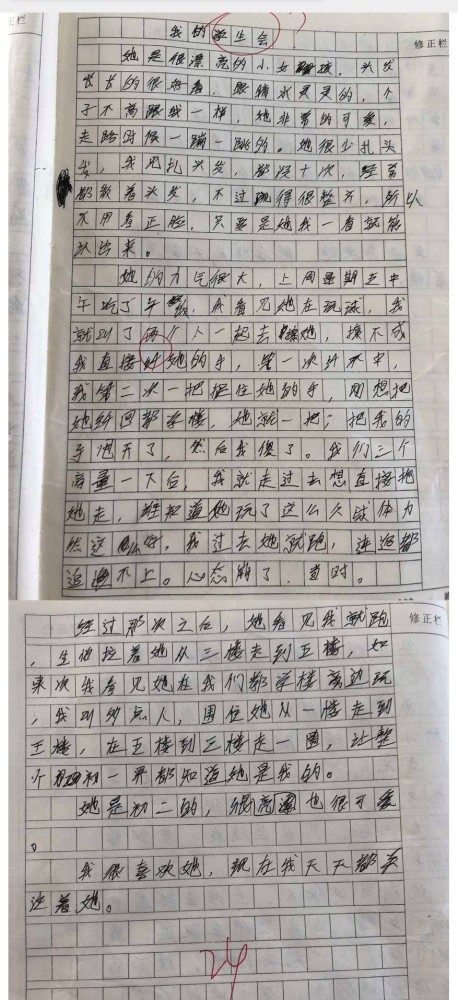 我的学生会
修正栏
她是很漂亮的小女孩，头发
长长的很好看，眼睛水灵灵的，个
子不高跟我一样，她非常的可爱，
走路时候一蹦一跳的。她很少扎头
发，我见扎头发，都没十次，经常
都散着头发，不过跑得很整齐，所以
不用看正脸，只要是她我一看就能
认出来。
她的力气很大，上周星期五中
午吃了午饭，我看见她在玩球，我
就叫了两个人一起去撩她，撩不成
我直接抄她的手，第一次抄不中，
我第二次一把抓住她的手，刚想把
她给回都学楼，她就一把；把我的
手甩开了，然后我傻了。我们三个
商量一下后，我就走过去想直接把
她走，谁知道她玩了这么久球体力
然这么好。我过去她就跑，连追都
追不上。心态崩了，当时。
修正栏
经过那次之后，她看见我就跑
，生怕拉着她从三楼走到五楼，如
果次我看见她在我们都学楼旁边玩
，我叫多点人，围住她从一楼走到
五楼，在五楼到三楼走一圈，让整
个初一界都知道她是我的。
她是初二的，很亮也很可爱
。
我很喜欢她，现在我天天都关
注着她。
24